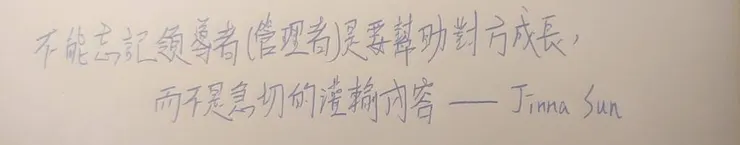 不能忘記領導者(管理者)是要幫助對方成長,
而不是急切的灌輸內容 — Jinna Sun